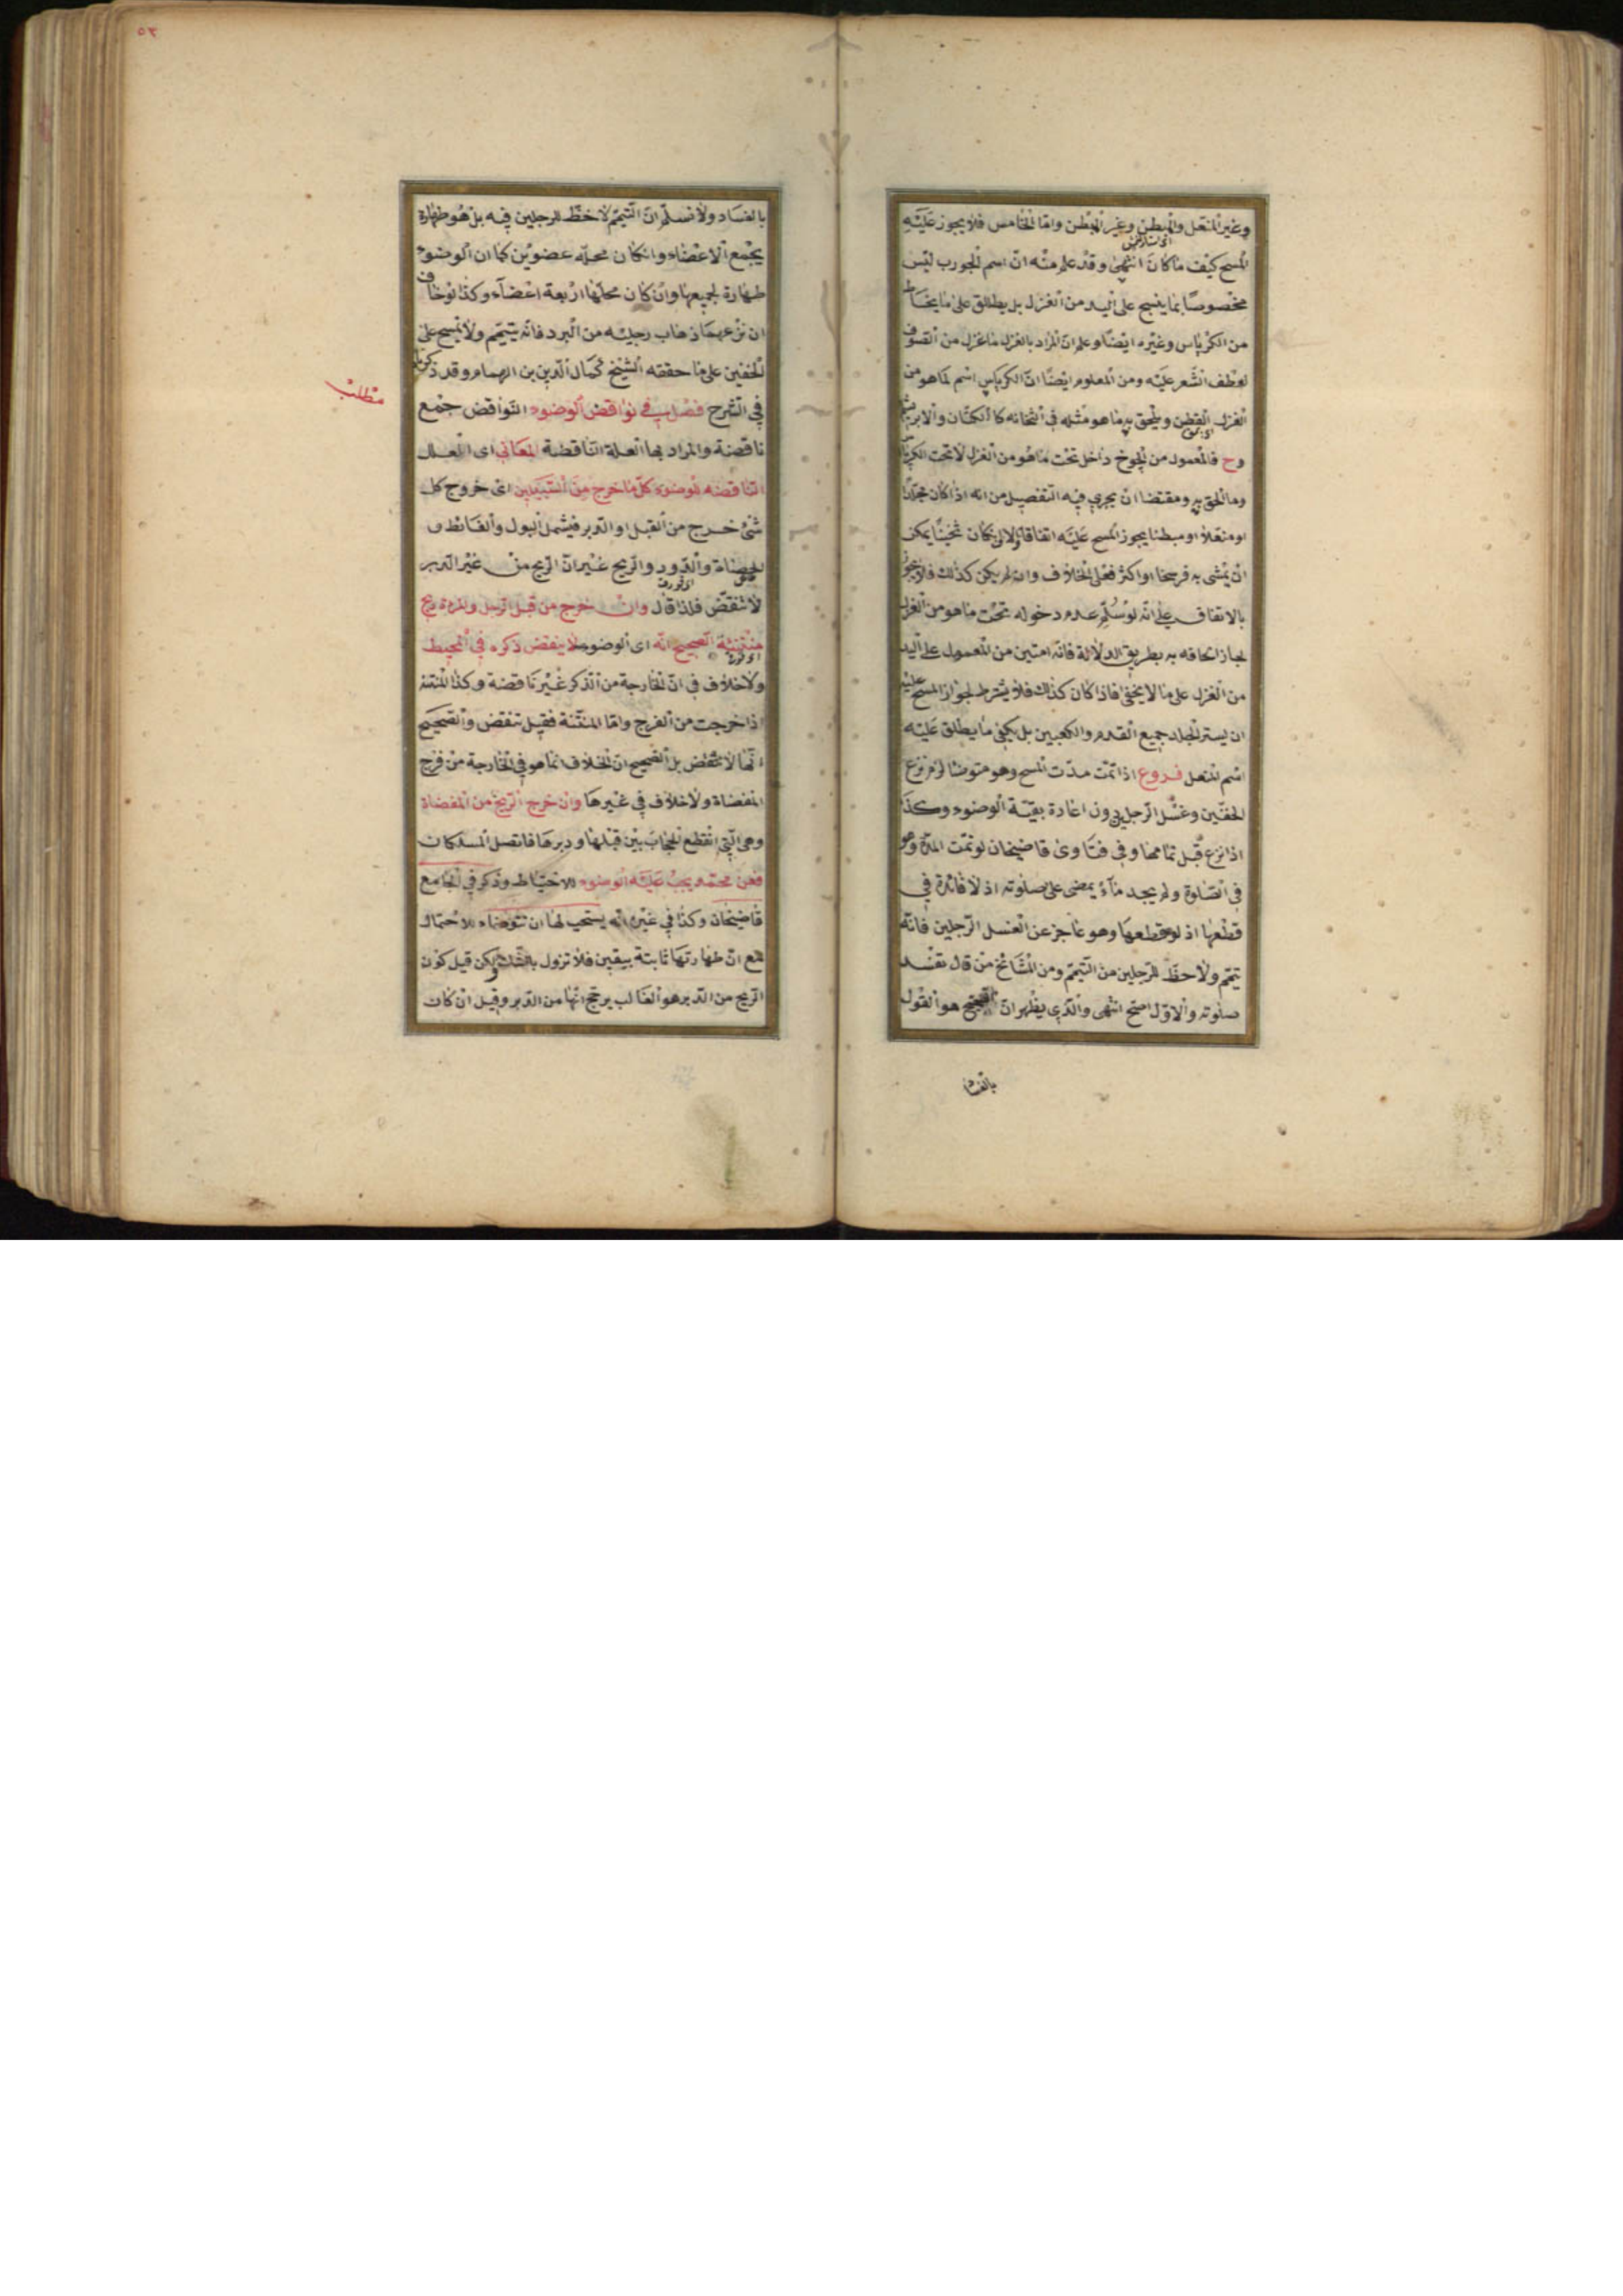 وغير المنعل والمبطن وغير المبطن واما الخامس فلا يجوز عليه
المسح كيف ما كان انتهى وقد علم منه ان اسم الجورب ليس
مخصوصا بما ينسج على اليد من الغزل بل يطلق على ما يخاط
من الكرباس وغيره ايضا وعلم ان المراد بالغزل ما غزل من الصوف
لعطف الشعر عليه ومن المعلوم ايضا ان الكرباس اسم لما هو من
الغزل القطن ويلحق به ما هو مثله في الثخانه كالكتان والابريسم
وح فالمعمول من الجوخ داخل تحت ما هو من الغزل لا تحت الكرباس
وما الحق به ومقتضا ان يجري فيه التفصيل من انه اذا كان مجلدا
او منعلا او مبطنا يجوز المسح عليه اتفاقا والا ان كان ثخينا يمكن
ان يمشى به فرسخا او اكثر فعلى الخلاف وان لم يكن كذلك فلا يجوز
بالاتفاق على انه لو سلم عدم دخوله تحت ما هو من الغزل
لجاز الحاقه به بطريق الدلالة فانه امتين من المعمول على اليد
من الغزل على ما لا يخفى فاذا كان كذلك فلا يشترط لجواز المسح عليه
ان يستر الجلد جميع القدم والكعبين بل يكفي ما يطلق عليه
اسم المنعل فروع اذا تمت مدت المسح وهو متوضا لزم نزع
الخفين وغسل الرجلين دون اعادة بقية الوضوء وكذا
اذا نزع قبل تمامها وفي فتاوى قاضيخان لو تمت المدة وهو
في الصلوة ولم يجد ماء يمضى على صلوته اذ لا فائدة في
قطعها اذ لو قطعها وهو عاجز عن الغسل الرجلين فانه
تيمم ولا حظ للرجلين من التيمم ومن المشائخ من قال تفسد
صلوته والاول اصح انتهى والذي يظهر ان الصحيح هو القول
بالفسا
٥٣
بالفساد ولا نسلم ان التيمم لا حظ للرجلين فيه بل هو طهارة
لجمع الاعضاء وان كان محله عضوين كما ان الوضوء
طهارة لجميعها وان كان محلها اربعة اعضاء وكذا لو خاف
ان نزعهما ذهاب رجليه من البرد فانه يتيمم ولا يمسح على
الخفين على ما حققه الشيخ كمال الدين بن الهمام وقد ذكرناه
في الشرح فصل في نواقض الوضوء النواقض جمع
مطلب
ناقضة والمراد بها العلة الناقضة المعاني اى العلل
الناقضه للوضوء كل ما خرج من السبيلين اى خروج كل
شئ خرج من القبل او الدبر فيشمل البول والغائط و
الحصاة والدود والريح غير ان الريح من غير الدبر
لا تنقض فلذا قال وان خرج من قبل الرجل والمراة ريح
منتنة الصحيح انه اى الوضوء لا ينقض ذكره في المحيط
ولا خلاف في ان الخارجة من الذكر غير ناقضة وكذا المنتنة
اذا خرجت من الفرج واما المنتنة فقيل تنقض والصحيح
انها لا تنقض بل الصحيح ان الخلاف انما هو في الخارجة من فرج
المفضاة ولا خلاف في غيرها وان خرج الريح من المفضاة
وهى التي انقطع الحجاب بين قبلها ودبرها فاتصل المسلكان
فعن محمد يجب عليه الوضوء للاحتياط وذكر في الجامع
قاضيخان وكذا في غيره انه يستحب لها ان تتوضاء للاحتمال
مع ان طهارتها ثابتة بيقين فلا تزول بالشك ولكن قيل كون
الريح من الدبر هو الغالب يرجح انها من الدبر وقيل ان كان